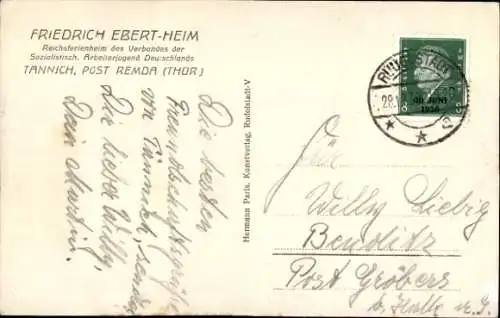 FRIEDRICH EBERT-HEIM
Reichsferienheim des Verbandes der
Sozialistisch. Arbeiterjugend Deutschlands
TÄNNICH, POST REMDA (THÜR)
Die besten
Freundschaftsgrüße
von Tännich, sendet
Die lieber Willy,
Dein Martin.
Hermann Paris, Kunstverlag, Rudolstadt-V
30. JUNI
1930
Für
Willy Liebig
Benditz
Post Gröbers
b. Halle a. S.